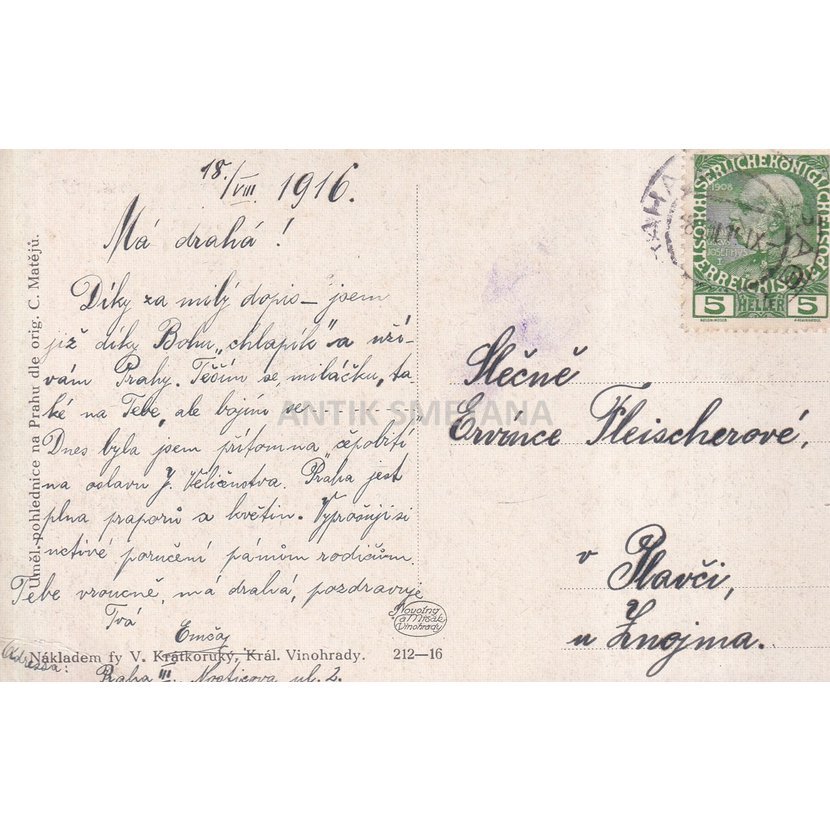 18./VIII 1916.
Má drahá!
Díky za milý dopis – jsem
již díky Bohu „chlapík" a uží-
vám Prahy. Těším se, miláčku, ta-
ké na Tebe, ale bojím se - - - - - - - - -
Dnes byla jsem přítomna
na oslavu J. Veličenstva. Praha jest
plna praporů a květin. Vyprošuji si
uctivé poručení pánům rodičům.
Tebe vroucně, má drahá, pozdravuje
Tvá
Adressa:
Praha III. Nosticova ul. 2.
Slečně
Ervínce Fleischerové,
v Plavči,
u Znojma.
Uměl. pohlednice na Prahu dle orig. C. Matějů.
Nákladem fy V. Krátkoruký, Král. Vinohrady.
212—16
Novotný
Vinohrady
1908
5 HELLER 5
ANTIK SMETANA